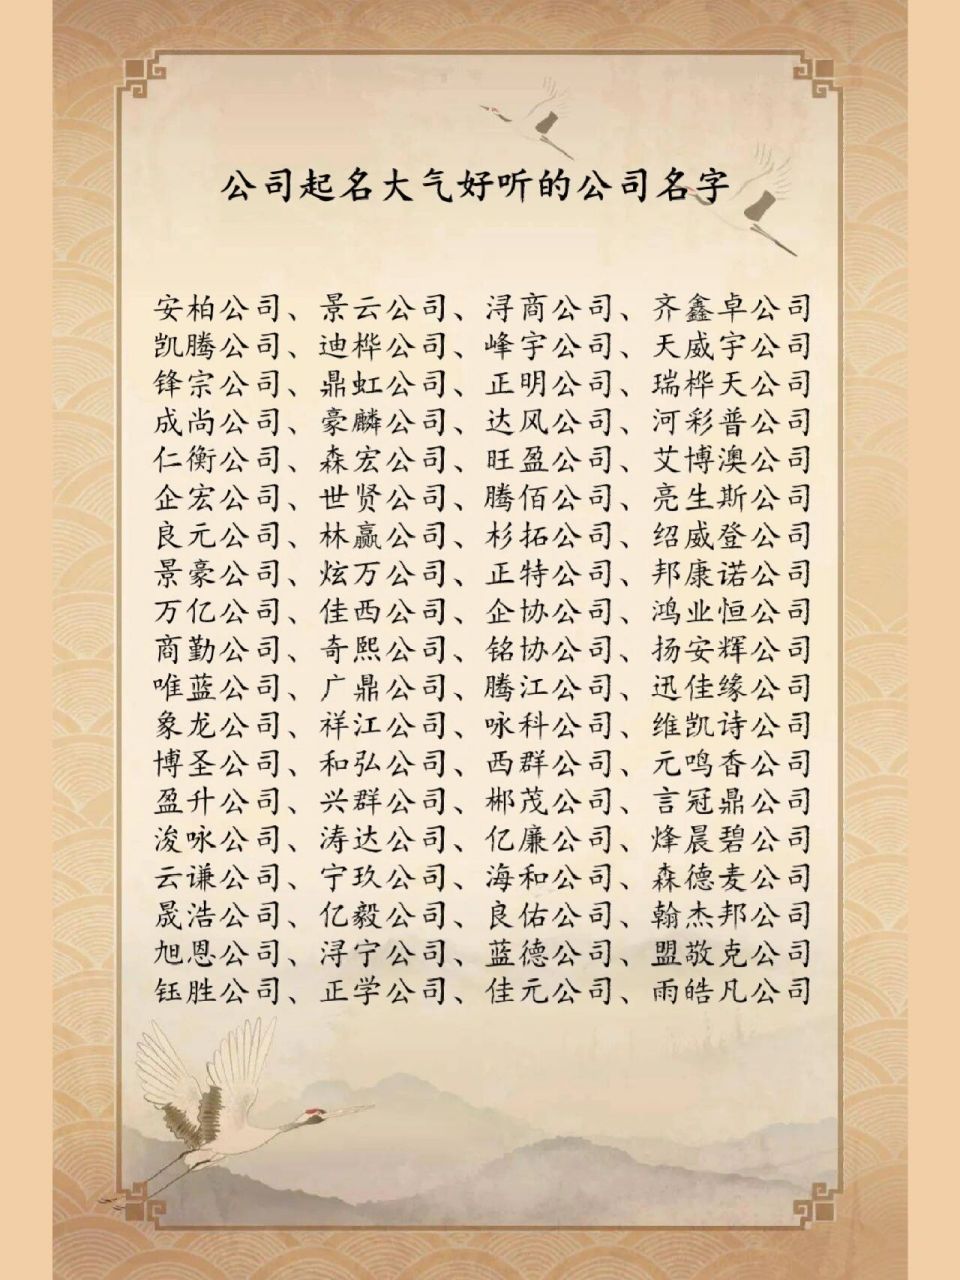 公司起名大气好听的公司名字
安柏公司、景云公司、浔商公司、齐鑫卓公司
凯腾公司、迪桦公司、峰宇公司、天威宇公司
锋宗公司、鼎虹公司、正明公司、瑞桦天公司
成尚公司、豪麟公司、达风公司、河彩普公司
仁衡公司、森宏公司、旺盈公司、艾博澳公司
企宏公司、世贤公司、腾佰公司、亮生斯公司
良元公司、林赢公司、杉拓公司、绍威登公司
景豪公司、炫万公司、正特公司、邦康诺公司
万亿公司、佳西公司、企协公司、鸿业恒公司
商勤公司、奇熙公司、铭协公司、扬安辉公司
唯蓝公司、广鼎公司、腾江公司、迅佳缘公司
象龙公司、祥江公司、咏科公司、维凯诗公司
博圣公司、和弘公司、西群公司、元鸣香公司
盈升公司、兴群公司、郴茂公司、言冠鼎公司
浚咏公司、涛达公司、亿廉公司、烽晨碧公司
云谦公司、宁玖公司、海和公司、森德麦公司
晟浩公司、亿毅公司、良佑公司、翰杰邦公司
旭恩公司、浔宁公司、蓝德公司、盟敬克公司
钰胜公司、正学公司、佳元公司、雨皓凡公司